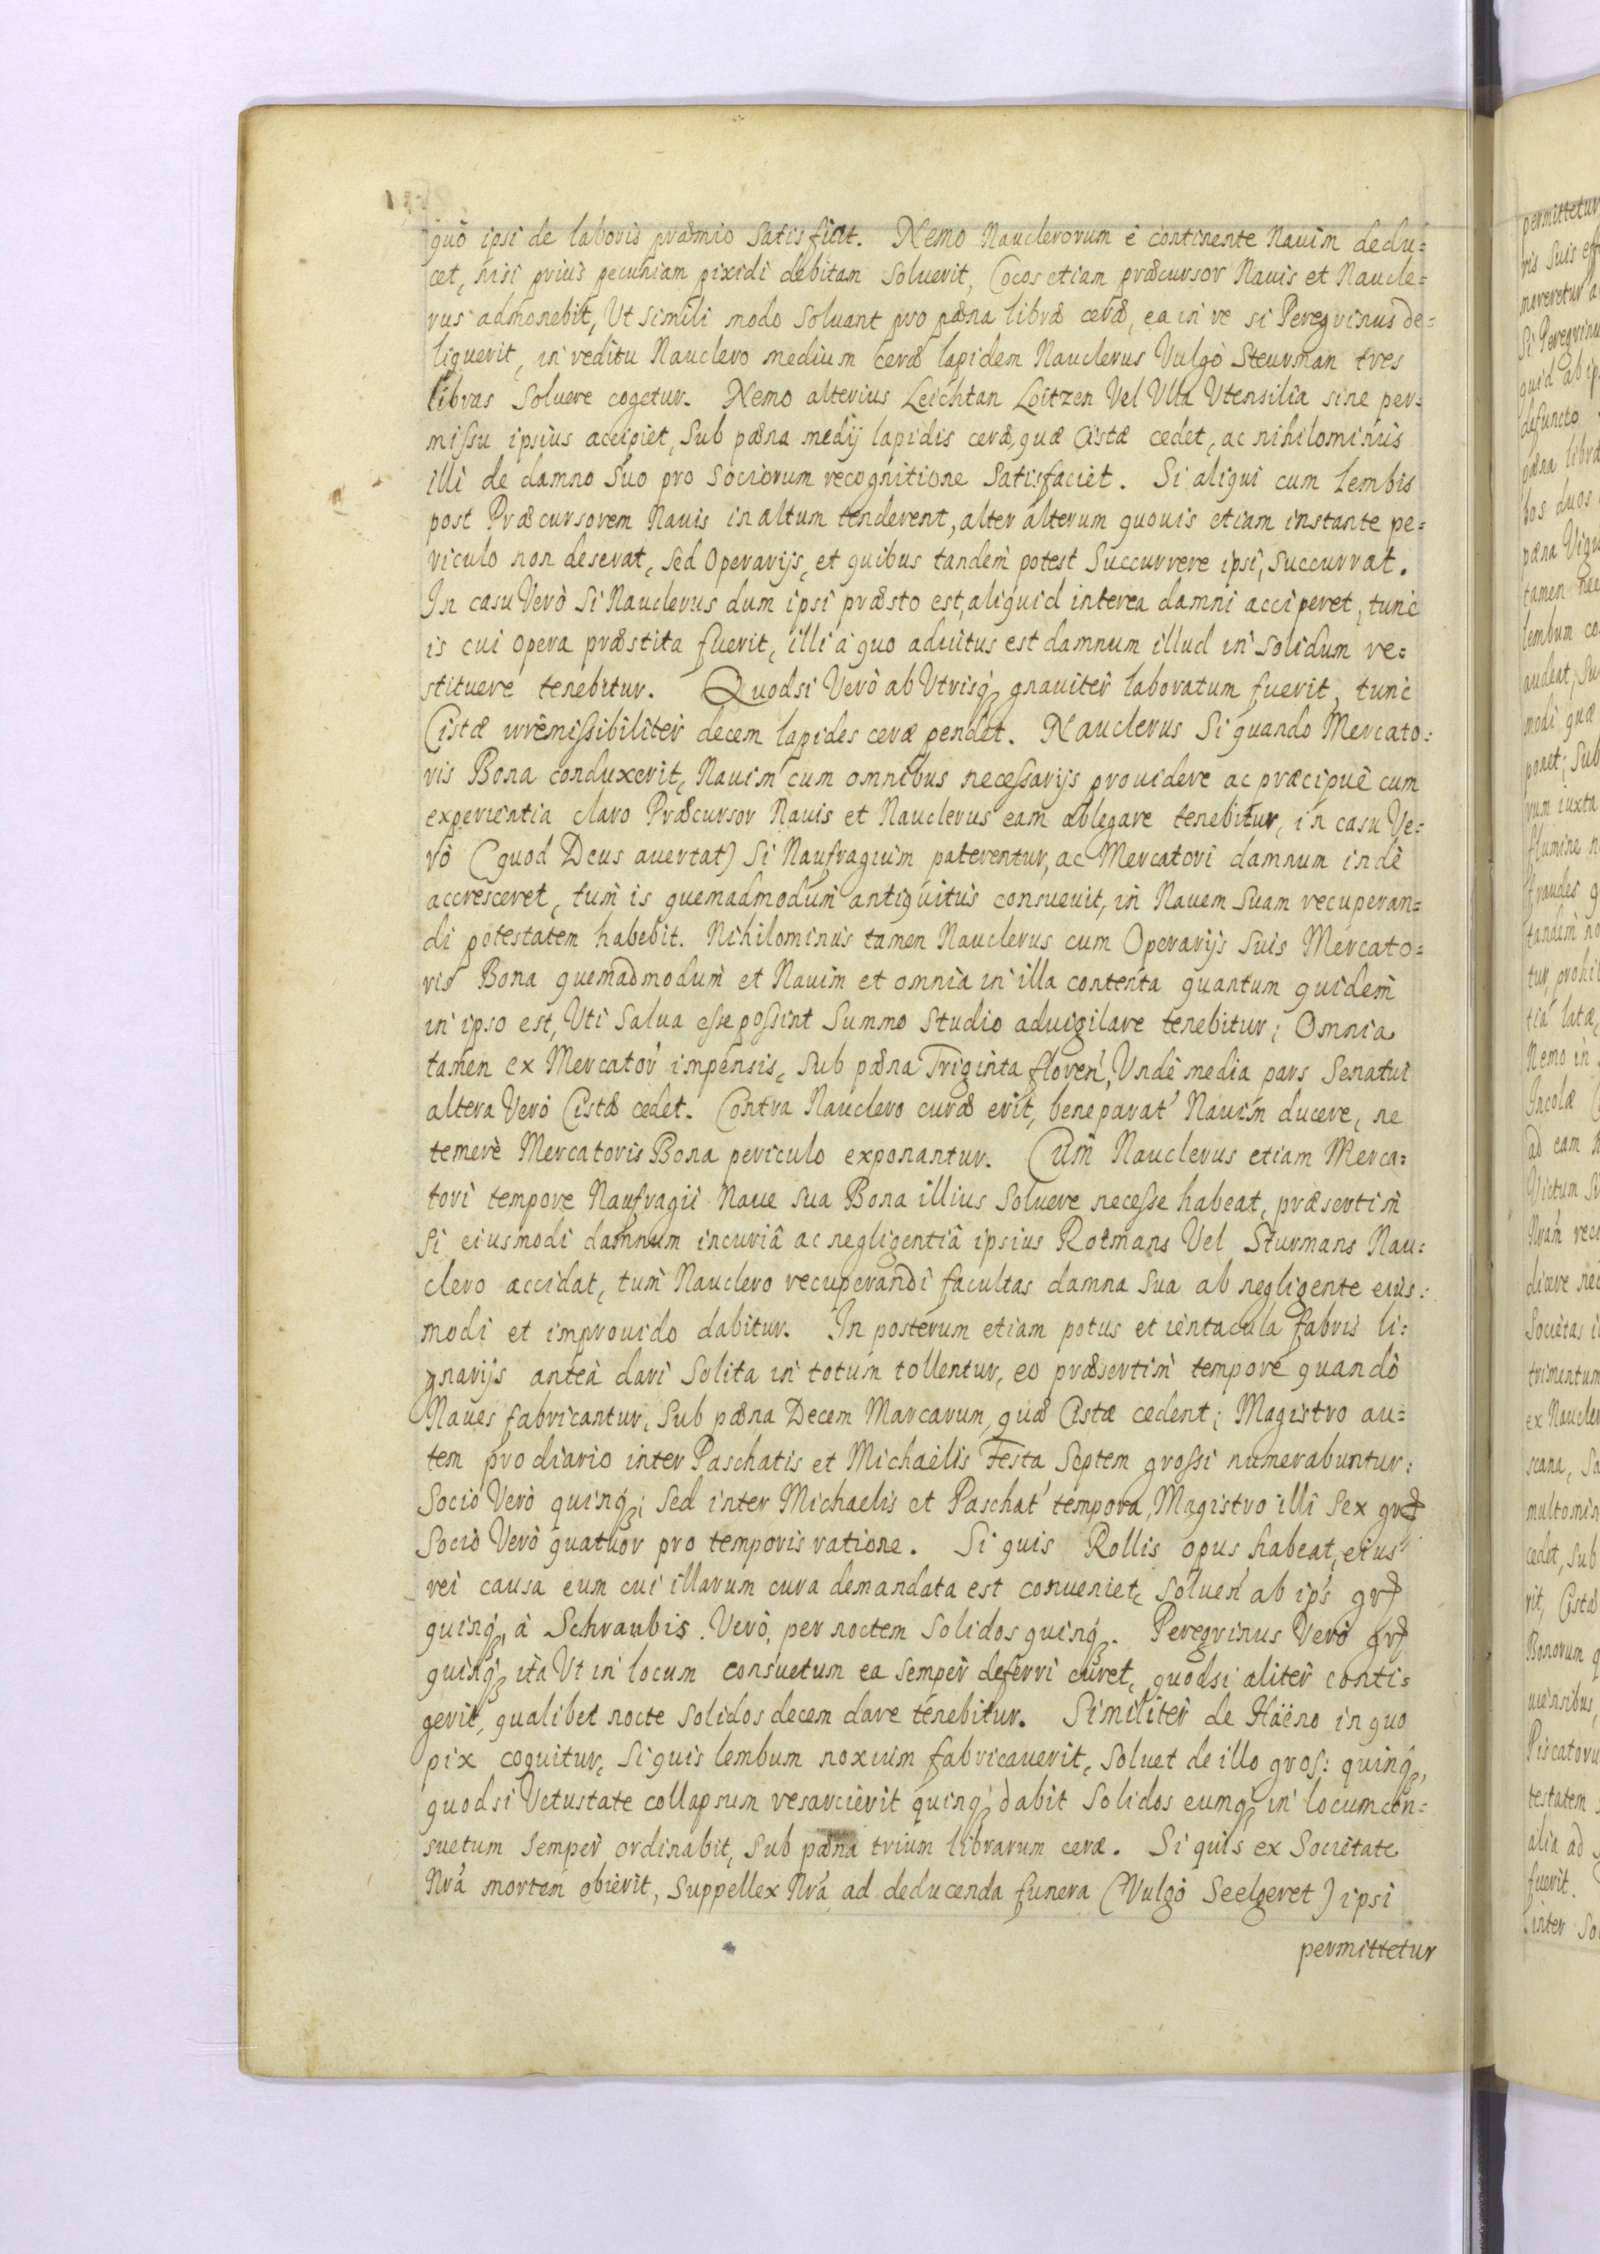 quo ipsi de laboris præmio Satisfiat. Nemo Nauclerorum è continente Nauim dedu=
cet, nisi priùs pecuniam pixidi debitam Soluerit, Cocos etiam præcursor Nauis et Naucle=
rus admonebit, Ut Simili modo Soluant pro pœna libræ ceræ, ea in re si Peregrinus de=
liquerit, in reditu Nauclero medium ceræ lapidem Nauclerus Vulgò Steurman tres
libras Soluere cogetur. Nemo alterius Leichtan Loitzen Vel Ulla Utensilia sine per=
missu ipsius accipiet, Sub pœna medij lapidis ceræ, quæ Cistæ cedet, ac nihilominùs
illi de damno Suo pro Sociorum recognitione Satisfaciet. Si aliqui cum Lembis
post Præcursorem Nauis in altum tenderent, alter alterum quouis etiam instante pe=
riculo non deserat, Sed Operarijs, et quibus tandem potest Succurrere ipsi, Succurrat.
In casu Verò Si Nauclerus dum ipsi præsto est, aliquid interea damni acciperet, tunc
is cui opera præstita fuerit, illi à quo adiutus est damnum illud in Solidum re=
stituere tenebitur. Quodsi Verò ab Utrisq; gnauiter laboratum fuerit, tunc
Cistæ irremissibiliter decem lapides ceræ pendet. Nauclerus Si quando Mercato=
ris Bona conduxerit, Nauim cum omnibus necessarijs prouidere ac præcipuè cum
experientia claro Præcursor Nauis et Nauclerus eam ablegare tenebitur, in casu Ve=
rò (quod Deus auertat) Si Naufragium paterentur, ac Mercatori damnum inde
accresceret, tum is quemadmodum antiquitus consueuit, in Nauem Suam recuperan=
di potestatem habebit. Nihilominùs tamen Nauclerus cum Operarijs Suis Mercato=
ris Bona quemadmodum et Nauim et omnia in illa contenta quantum quidem
in ipso est, Uti Salua esse possint Summo Studio aduigilare tenebitur; Omnia
tamen ex Mercator' impensis, Sub pœna Triginta floren', Unde media pars Senatui
altera Verò Cistæ cedet. Contra Nauclero curæ erit, bene parat' Nauim ducere, ne
temerè Mercatoris Bona periculo exponantur. Cum Nauclerus etiam Merca=
tori tempore Naufragii Naue Sua Bona illius Soluere necesse habeat, præsertim
Si eiusmodi damnum incuriâ ac negligentiâ ipsius Rotmans Vel Sturmans Nau=
clero accidat, tum Nauclero recuperandi facultas damna Sua ab negligente eius=
modi et improuido dabitur. In posterum etiam potus et ientacula fabris li=
gnarijs anteà dari Solita in totum tollentur, eo præsertim tempore quando
Naues fabricantur, Sub pœna Decem Marcarum, quæ Cistæ cedent; Magistro au=
tem pro diario inter Paschatis et Michaëlis Festa Septem grossi numerabuntur:
Socio Verò quinq;; Sed inter Michaelis et Paschat' tempora, Magistro illi Sex gr
Socio Verò quatuor pro temporis ratione. Si quis Rollis opus habeat, eius
rei causa eum cui illarum cura demandata est conueniet, Soluen' ab ip's gr
quinq;, à Schraubis Verò, per noctem Solidos quinq;. Peregrinus Verò gr
quinq; ita Ut in locum consuetum ea Semper deferri curet, quodsi aliter conti=
gerit, qualibet nocte Solidos decem dare tenebitur. Similiter de Häeno in quo
pix coquitur, Si quis lembum noxium fabricauerit, Soluet de illo gros: quinq;,
quodsi Vetustate collapsum resarcierit quinq; dabit Solidos eumq; in locum con=
suetum Semper ordinabit, Sub pœna trium librarum ceræ. Si quis ex Societate
Nr'a mortem obierit, Suppellex Nr'a ad deducenda funera (Vulgò Seelgeret) ipsi
permittetur